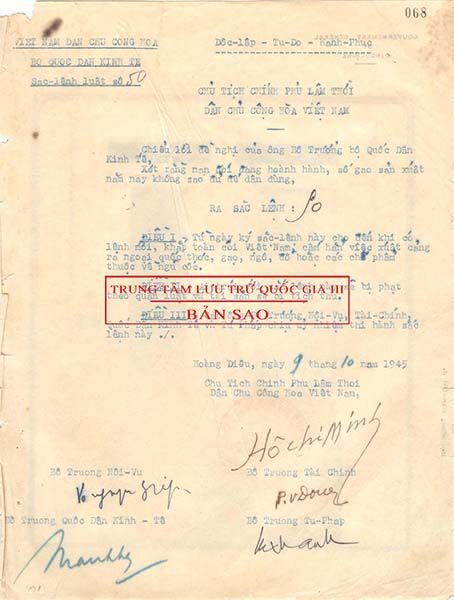 068
VIET NAM DAN CHU CONG HOA
BO QUOC DAN KINH TE
Sac-lệnh luật số 50
Dôc-lâp - Tu-Do - Hanh-Phuc
CHỦ TỊCH CHÍNH PHỦ LÂM THỜI
DÂN CHỦ CÔNG HÒA VIẾT NAM
Chiếu lối đề nghị của ông Bô Trưởng bô Quốc Dân
Kinh Tế,
Xét rằng nạn đói đang hoành hành, số gạo sản xuất
năm nay không sao đủ để dân dùng,
RA SẮC LỆNH: 50
ĐIỀU I - Từ ngày ký sắc-lệnh này cho đến khi có
lệnh nới, khắp toàn cõi Việt Nam, cấm hẳn việc xuất cảng
ra ngoại quốc thóc, gạo, ngô, đỗ hoặc các chế phẩm
thuộc về ngũ cốc.
bị phạt
theo quân luật và tài sản sẽ bị tịch thu.
TRUNG TÂM LƯU TRỮ QUỐC GIA III
BẢN SAO
ĐIỀU III Trưởng, Nội-Vụ, Tài-Chính,
Quốc Dân Kinh Tế và Tư Pháp chịu uỷ nhiệm thi hành sắc
lệnh này ./.
Hoàng Diêu, ngày 9 tháng 10 năm 1945
Chu Tich Chinh Phu Lâm Thoi
Dân Chu Công Hoa Viêt Nam,
Hồ Chí Minh
Bô Truong Nôi-Vu
Bô Truong Tài Chinh
P.v Dong
Bô Truong Quôc Dân Kinh - Tê
Bô Truong Tu-Phap